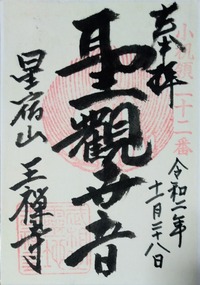 奉拝
小机領二十二番
令和二年
十二月二十八日
聖觀世音
星宿山 王禅寺